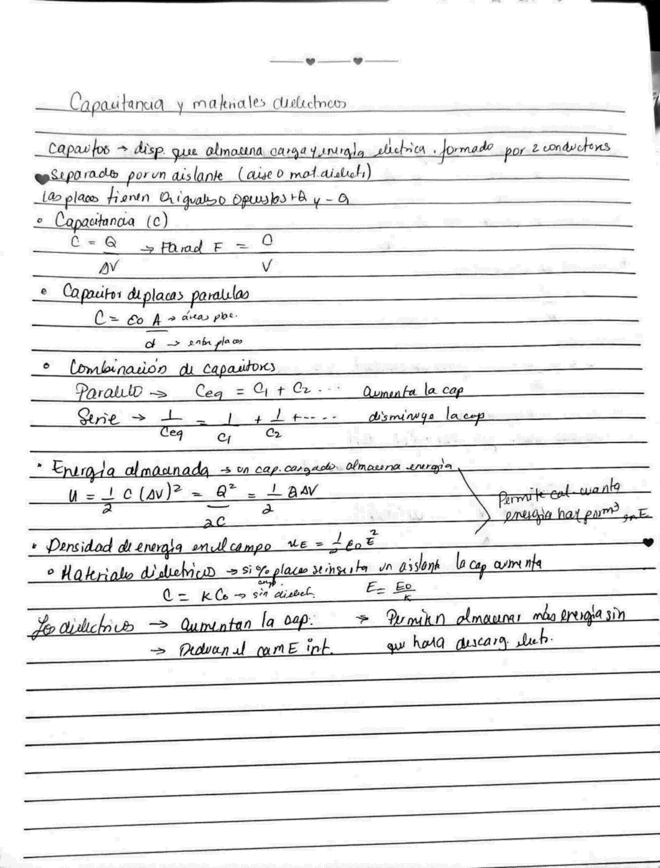 Capacitancia y materiales dielectricos
Capacitor → disp. que almacena carga y energia electrica. formado por 2 conductores
separados por un aislante (aire o mat. dielect.)
Las placas tienen Q iguales o opuestos +Q y -Q
◦ Capacitancia (C)
C = Q / ΔV → Farad F = C / V
• Capacitor de placas paralelas
C = ε0 A → áreas plac.
d → entre placas
◦ Combinación de capacitores
Paralelo → Ceq = C1 + C2 ... aumenta la cap
Serie → 1/Ceq = 1/C1 + 1/C2 + ..... disminuye la cap
• Energía almacenada → un cap. cargado almacena energía
U = 1/2 C (ΔV)² = Q²/2C = 1/2 Q ΔV
Permite cal. cuanta
energia hay por m³, en E
• Densidad de energía en el campo uE = 1/2 ε0 E²
◦ Materiales dielectricos → si % placas se inserta un aislante la cap aumenta
C = K C0 → sin dielect. E = E0/K
Los dielectricos → aumentan la cap. → Permiten almacenar más energia sin
→ Reducen el cam E int. que haya descarg. elect.